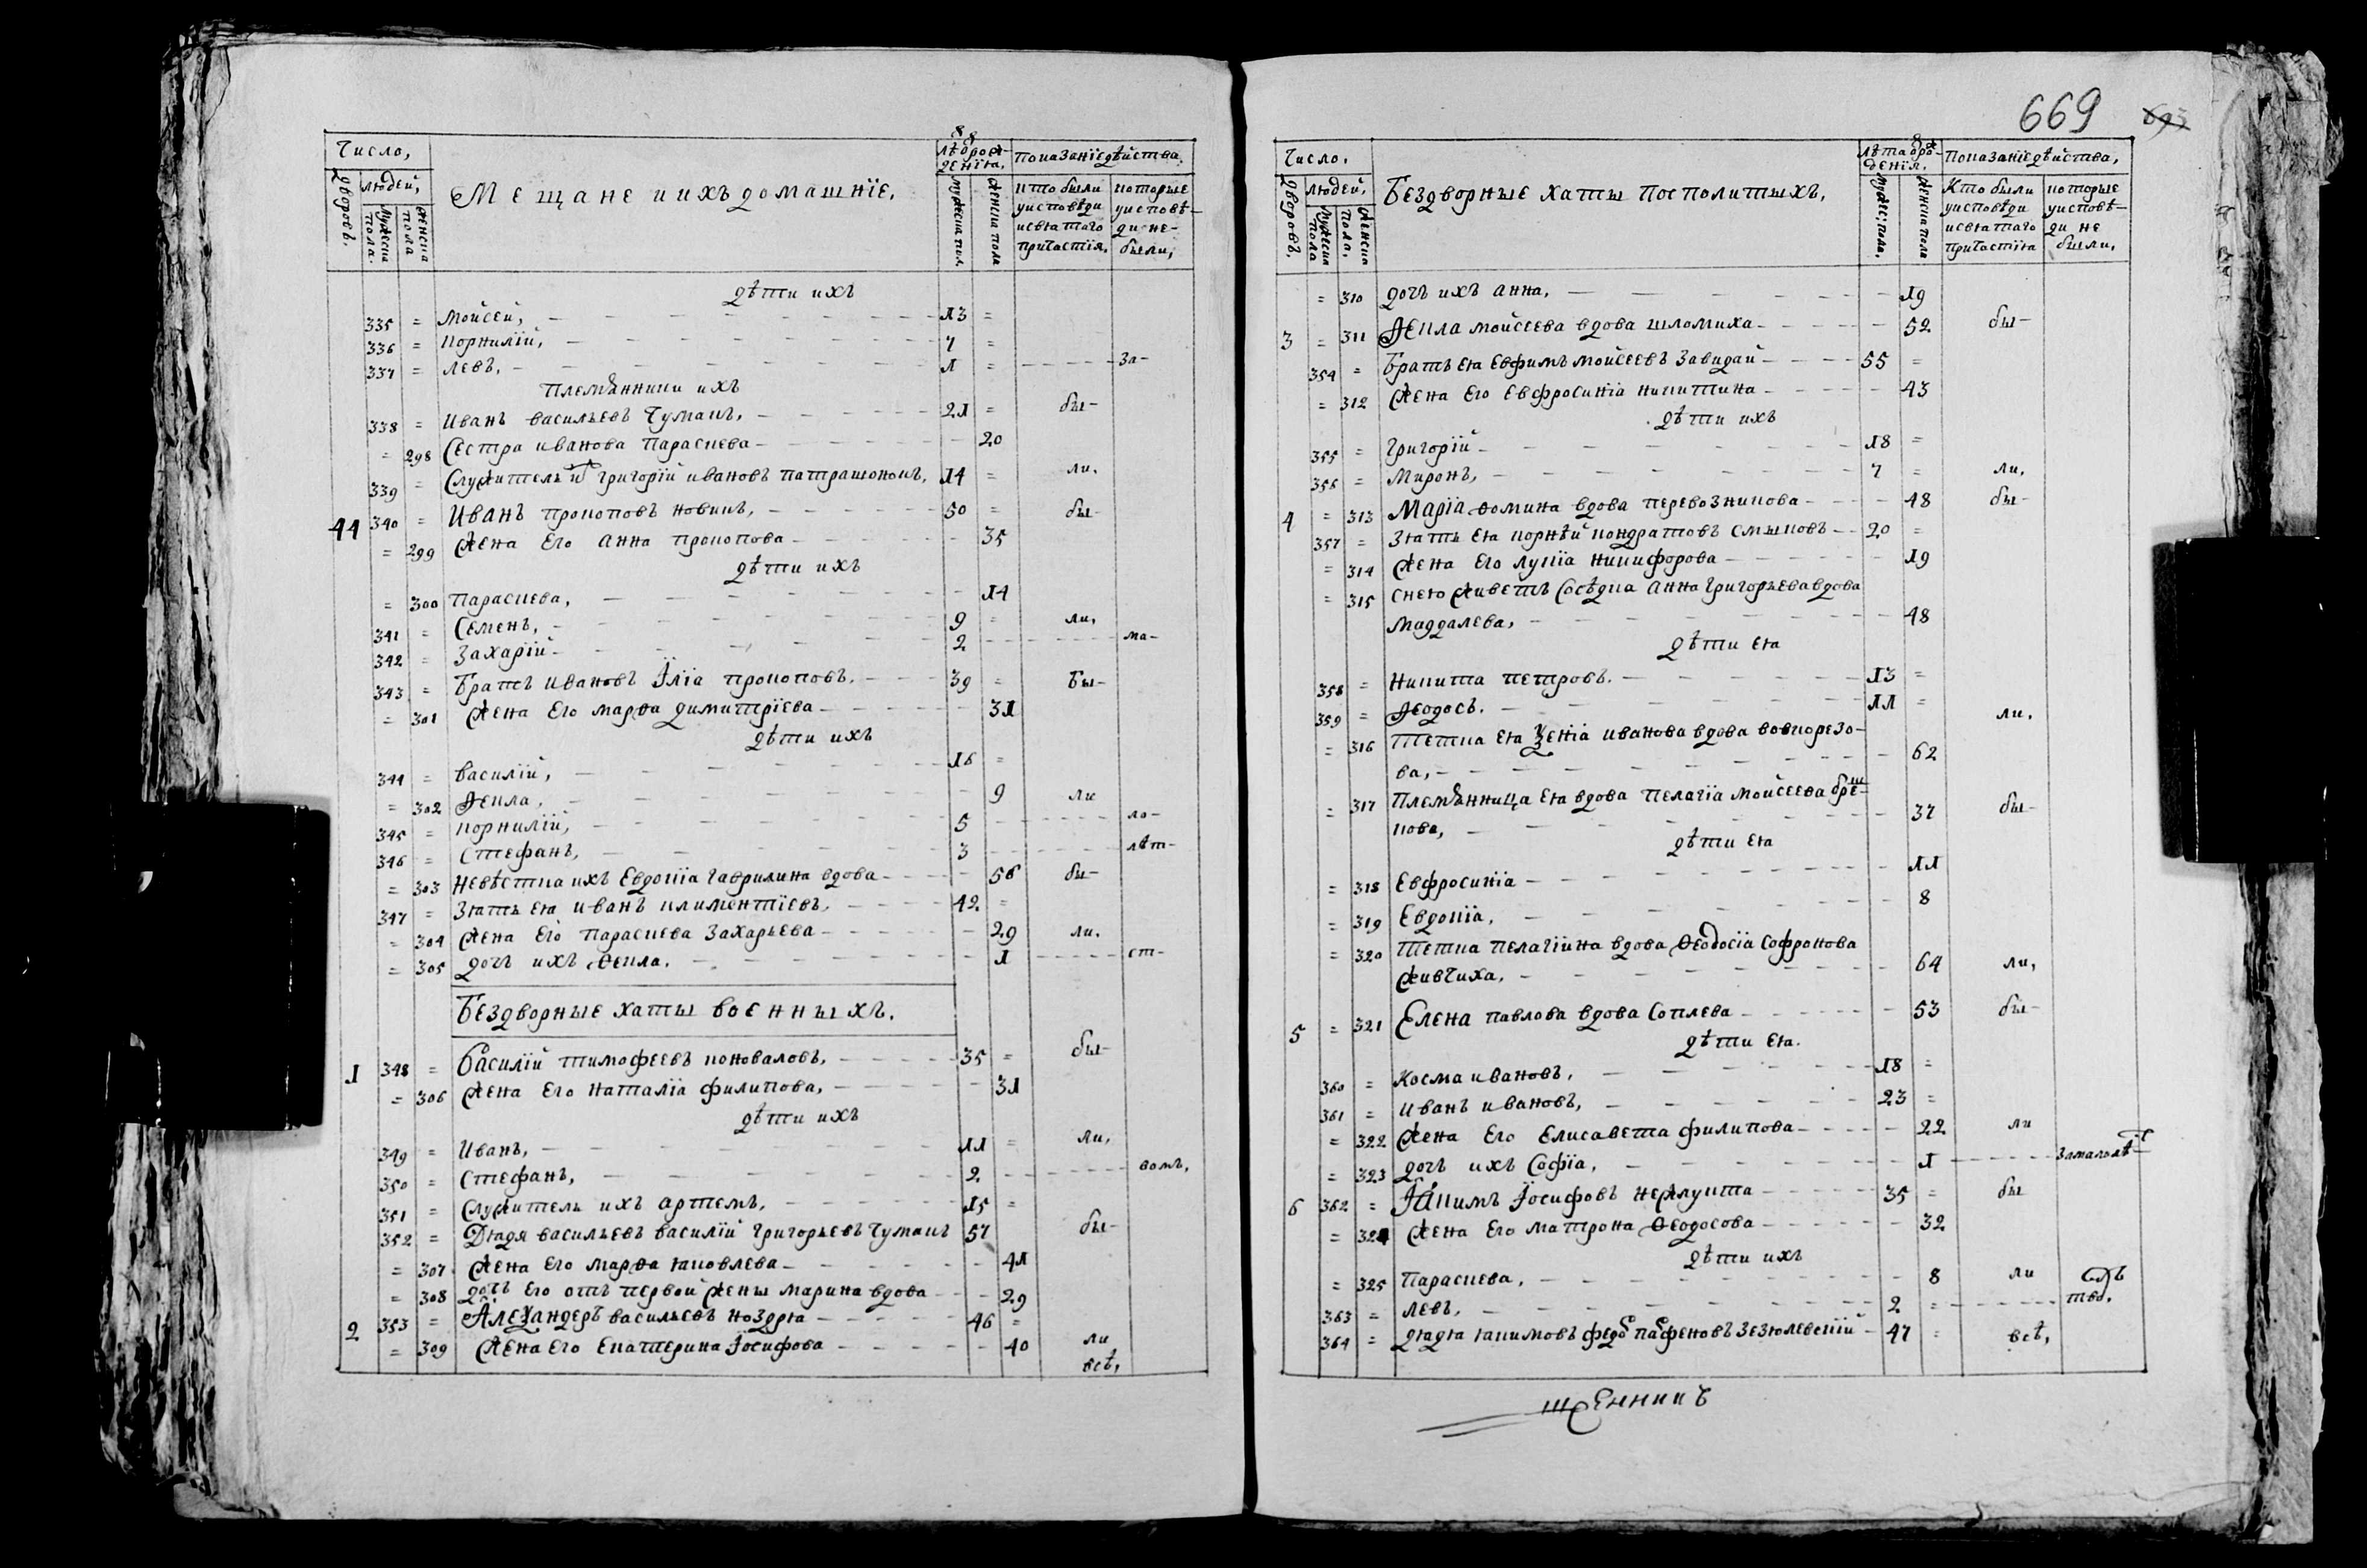 Число,
Мещане и ихъ домашнїе.
Лѣт ѿ рож-
денїя.
Показанїе дѣйства.
Дворовъ.
Людей,
Мужеска пола.
Женска пола
Мужеска пол.
Женска пола
Кто были
у исповѣди
и святаго
причастїя,
Которые
у исповѣ-
ди не-
были,
дѣти ихъ
335 = Мойсей, 13 =
336 = Корнилїй, 7 =
337 = Левъ, 1 = за-
племянники ихъ
338 = Иванъ васильевъ Чумакъ, 21 = бы-
= 298 Сестра иванова Параскева - 20
339 = Служитель и Григорїй ивановъ патрашонокъ, 14 = ли,
44 340 = Иванъ прокоповъ новикъ, 50 = бы-
= 299 Жена его анна прокопова - 35
дѣти ихъ
= 300 Параскева, - 14
341 = Семенъ, 9 = ли,
342 = Захарїй - 2 ма-
343 = братъ ивановъ Їлїа прокоповъ, 39 = бы-
= 301 Жена его марѳа димитрїева - 31
дѣти ихъ
344 = василїй, 16 =
= 302 Ѳекла, - 9 ли
345 = корнилїй, 5 ло-
346 = Стефанъ, 3 лѣт-
= 303 Невѣстка ихъ Евдокїа гаврилина вдова - 56 бы-
347 = Зять ея иванъ климентїевъ, 42 =
= 304 Жена его параскева Захарьева - 29 ли.
= 305 дочь ихъ ѳекла, - 1 ст-
Бездворные хаты военныхъ.
1 348 = Василїй тимофеевъ коновалов, 35 = бы-
= 306 Жена его наталїа филипова, - 31
дѣти ихъ
349 = Иванъ, 11 = ли,
350 = Стефанъ, 2 вомъ,
351 = Служитель ихъ артемъ, 15 =
352 = Дядя васильевъ василїй григорьевъ чумакъ 57 бы-
= 307 Жена его марѳа яковлева - 41
= 308 дочь его отъ первой жены марина вдова - 29
2 353 = Алеѯандеръ васильевъ ноздря - 46 =
= 309 Жена его екатерина їосифова - 40 ли
всѣ,
669
Число.
Бездворные хаты посполитыхъ.
Лѣта ѿ ро-
денїя.
Показанїе дѣйства,
Дворовъ,
Людей,
Мужеска пола
Женска пола,
Мужес: пола,
Женска пола
Кто были
у исповѣди
и святаго
причастїя
которые
у исповѣ-
ди не
были,
= 310 дочь ихъ анна, - 19
3 = 311 Ѳекла мойсеева вдова шломиха - 52 бы-
354 = братъ ея Евфимъ мойсеевъ Завидай - 55 =
= 312 Жена его евфросинїа никитина - 43
дѣти ихъ
355 = григорїй - 18 =
356 = Миронъ, 7 = ли,
4 = 313 Марїа ѳомина вдова перевозникова - 48 бы-
357 = Зять ея корнѣй кондратовъ смыковъ - 20 =
= 314 Жена его лукїа никифорова - 19
= 315 снею живетъ сосѣдка анна григорьева вдова
маддалева, - 48
дѣти ея
358 = никита петровъ. 13 =
359 = Ѳеодосъ. 11 =
= 316 Тетка ея Ѯенїа иванова вдова вовкорезо- ли.
ва, - 62
= 317 Племянница ея вдова пелагїа мойсеева
кова, - 37 бы-
дѣти ея
= 318 Евфросинїа - 11
= 319 Евдокїа, - 8
= 320 Тетка пелагїина вдова ѳеодосїа софронова
живчиха, - 64 ли,
5 = 321 Елена павлова вдова Соплева - 53 бы-
дѣти ея.
360 = косма ивановъ, 18 =
361 = иванъ ивановъ, 23 =
= 322 Жена его елисавета филипова - 22 ли
= 323 дочь ихъ софїа, - 1 за малолѣт-
6 362 = Їакимъ їосифовъ нежлукта - 35 = бы
= 324 Жена его матрона ѳеодосова - 32
дѣти ихъ
= 325 параскева, - 8 ли
363 = левъ, 2 = тво,
364 = дядя якимовъ федо паѳеновъ Зезюлевскїй - 47 = всѣ,
щенникъ